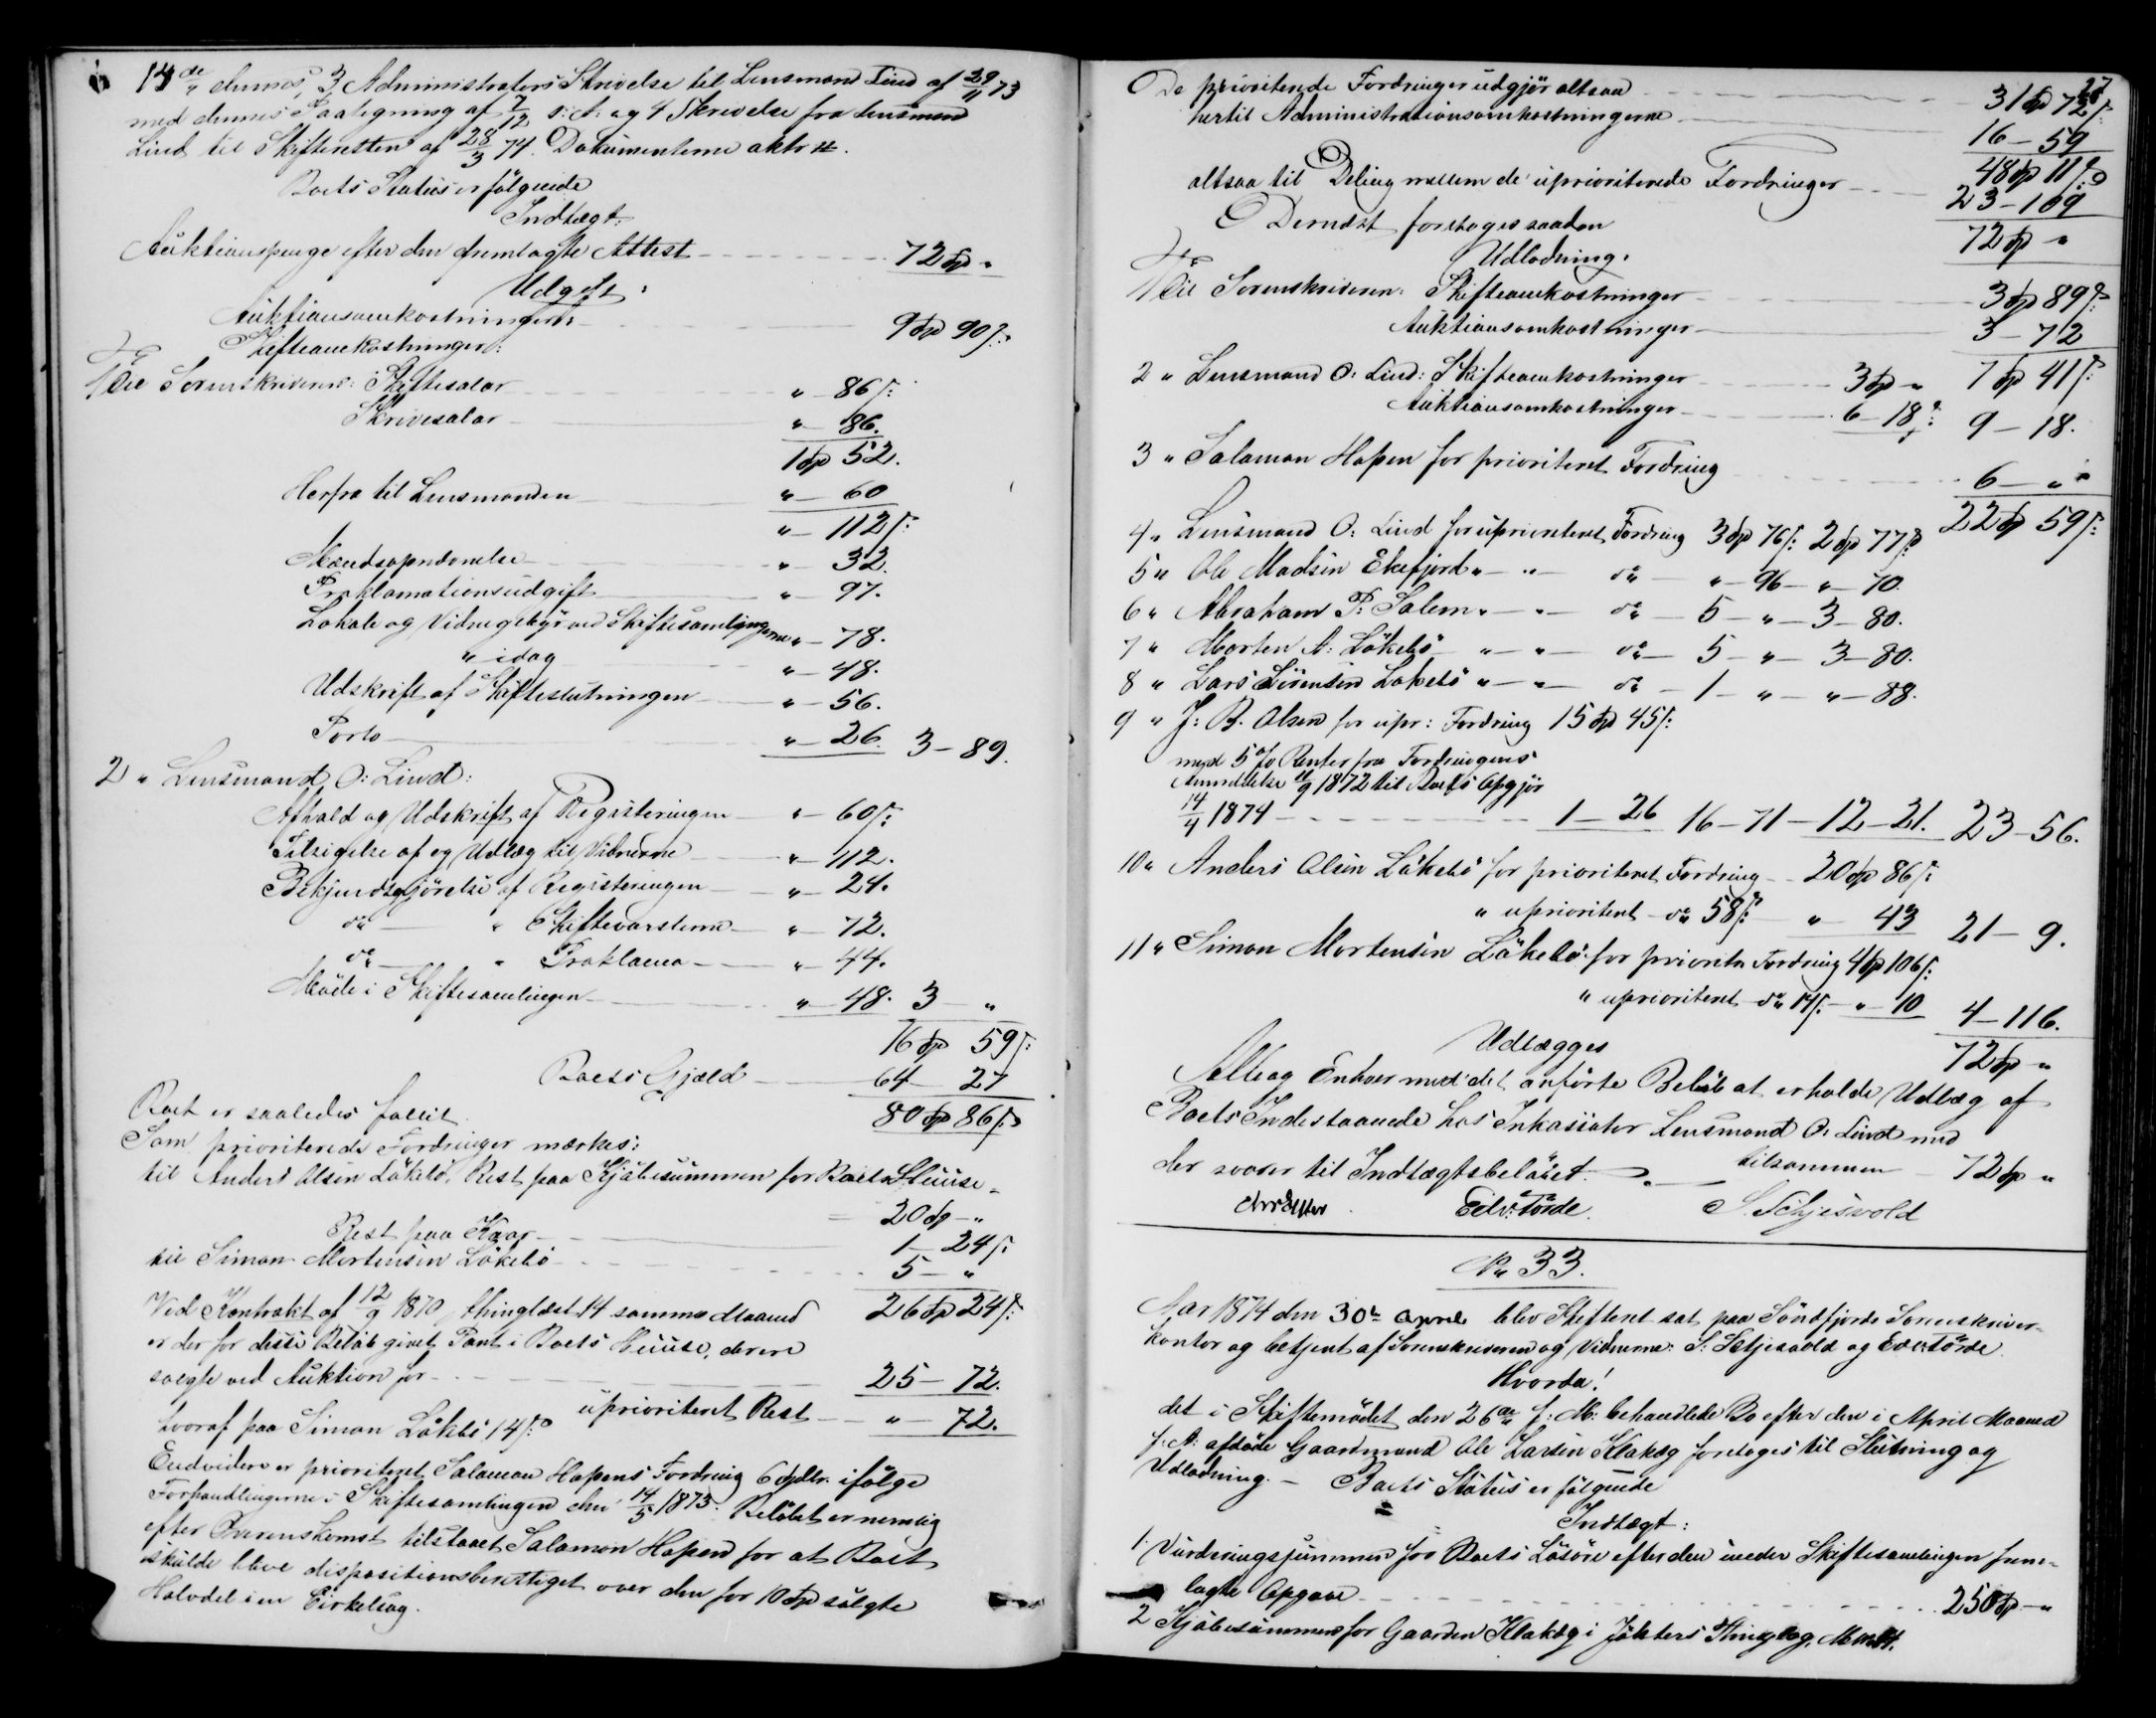 14de dennes, 3 Administrators Skrivelse til Lensmand Lind af 29/11 73
med dennes Paategning af 7/12 s: A: og 4 Skrivelse fra Lensmand
Lind til Skifteretten af 28/3 74. Dokumenterne
Boets Status er følgende
Indtægt:
Auktionspenge efter den fremlagte Attest 72 Sp "
Udgift:
Auktionsomkostningerne 9 Sp 90 s:
Skifteomkostninger:
1 Til Sorenskriveren: Skiftesalar " 86 s:
Skrivesalar " 86.
1 Sp 52.
Herfra til Lensmanden " 60
" 112 s:
Mændsopnævnelse " 32
Proklamationsudgift " 97.
Lokale og Vidnegebyr ved Skiftesamlingerne " 78.
" idag " 48.
Udskrift af Skifteslutningen " 56.
Porto " 26. 3 - 89.
2 " Lensmand O: Lind:
Afhold og Udskrift af Registeringen " 60 s:
Tilsigelse af og Udlæg til Vidnerne " 112.
Bekjendtgjørelse af Registeringen " 24.
do " Skiftevarslerne " 72.
do " Proklama " 44.
Møde i Skiftesamlingen " 48. 3 "
16 Sp 59 s:
Boets Gjæld 64 - 27
80 Sp 86 s:
Boet er saaledes fallit.
Som prioriterede Fordringer mærkes:
til Anders Olsen Løkebø, Rest paa Kjøbesummen for Boets Huuse
20 Sp - "
Rest paa Kaar 1 - 24 s:
til Simon Mortensen Løkebø 5 - "
26 Sp 24 s:
Ved Kontrakt af 12/9 1870, thinglæst 14 samme Maaned
er der for disse Beløb givet Pant i Boets Huuse, der ere
solgte ved Auktion for 25 - 72.
uprioriteret Rest " 72.
hvoraf paa Simon Løkebø 14 s:
Endvidere er prioriteret Salamon Hopens Fordring 6 Spdlr. ifølge
Forhandlingerne i Skiftesamlingen den 14/5 1873. Beløbet er nemlig
efter Overenskomst tilstaaet Salamon Hopen for at Boet
skulde blive dispositionsberettiget over den for 10 Sp solgte
Halvdel i en Cirkelsag.
27
De prioriterede Fordringer udgjør altsaa 31 Sp 72 s:
hertil Administrationsomkostningerne 16 - 59
48 Sp 11 s:
altsaa til Deling mellem de uprioriterede Fordringer 23 - 109
72 Sp "
Dernæst foretoges saadan
Udlodning:
1 Til Sorenskriveren: Skifteomkostninger 3 Sp 89 s:
Auktionsomkostninger 3 - 72
7 Sp 41 s:
2 " Lensmand O: Lind: Skifteomkostninger 3 Sp "
Auktionsomkostninger 6 - 18 s: 9 - 18.
3 " Salamon Hopen for prioriteret Fordring 6 - "
22 Sp 59 s:
4 " Lensmand O: Lind for uprioriteret Fordring 3 Sp 76 s: 2 Sp 77 s:
5 " Ole Madsen Ekefjord " - " - do " - 96 - " - 70.
6 " Abraham P: Salem " - " - do 5 - " - 3 - 80.
7 " Morten A: Løkebø " - " - do 5 - " - 3 - 80.
8 " Lars Sørensen Løkebø " - " - do 1 - " - " - 88.
9 " J: B. Olsen for upr: Fordring 15 Sp 45 s:
med 5 % Renter fra Fordringens
Anmeldelse /9 1872 til Boets Opgjør
14/4 1874 1 - 26 16 - 71 - 12 - 21. 23 - 56.
10 " Anders Olsen Løkebø for prioriteret Fordring 20 Sp 86 s:
" uprioriteret do 58 s: " 43 21 - 9.
11 " Simon Mortensen Løkebø for priorite Fordring 4 Sp 106 s:
" uprioriteret do 14 s: - " - 10 4 - 116.
72 Sp "
Udlægges
Alle og Enhver med det anførte Beløb at erholde Udlæg af
Boets Indestaaende hos Inkassator Lensmand O: Lind med
tilsammen 72 Sp "
der svarer til Indtægtsbeløbet.
Edv: Førde. S. Schjesvold
No 33.
Aar 1874 den 30te April blev Skifteret sat paa Søndfjords Sorenskriver-
kontor og betjent af Sorenskriveren og Vidnerne: S. Schjesvold og Edv: Førde.
Hvorda!
det i Skiftemødet den 26de f: M: behandlede Bo efter den i April Maaned
f: A: afdøde Gaardmand Ole Larsen Klakeg foretoges til Slutning og
Udlodning. - Boets Status er følgende
Indtægt:
1. Vurderingssummen for Boets Løsøre efter den under Skiftesamlingen frem-
lagte Opgave 250 Sp "
2 Kjøbesummen for Gaarden Klakeg i Jølsters Thinglag,